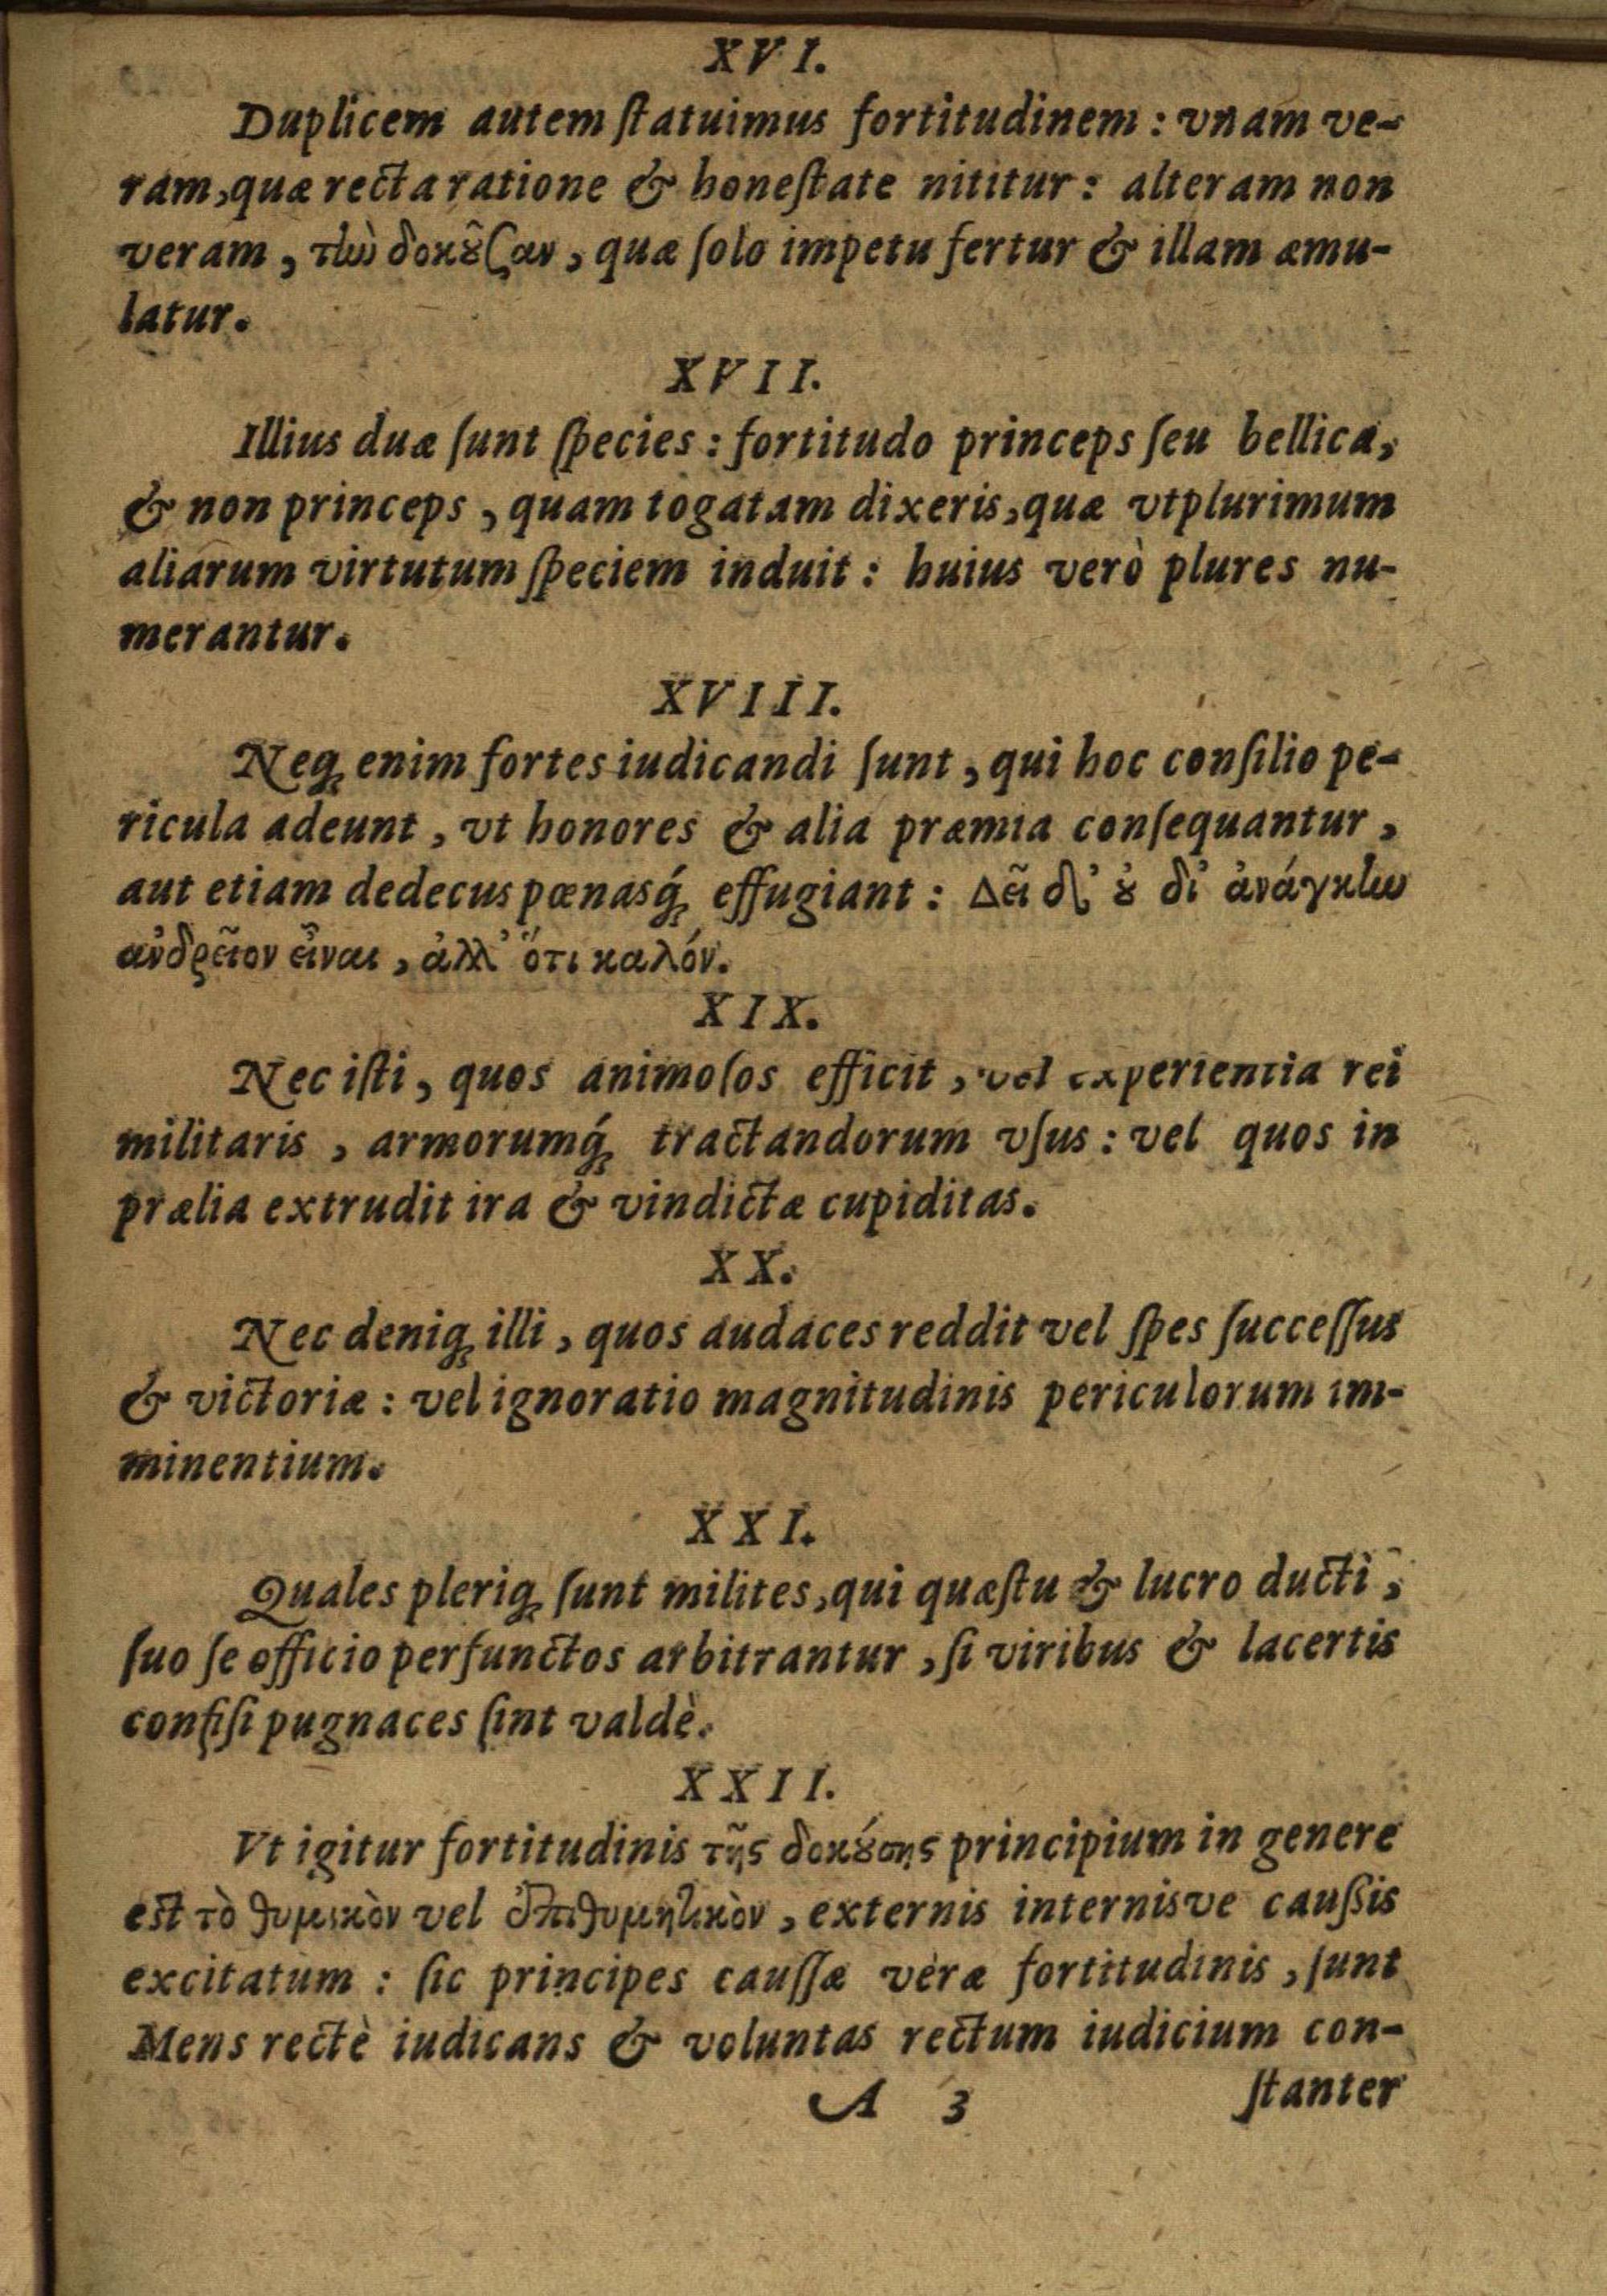 XVI.
Duplicem autem ſtatuimus fortitudinem : vnam ve-
ram, quæ recta ratione & honeſtate nititur : alteram non
veram, τὴν δοκοῦσαν, quæ ſolo impetu fertur & illam æmu-
latur.
XVII.
Illius duæ ſunt ſpecies : fortitudo princeps ſeu bellica,
& non princeps, quam togatam dixeris, quæ vtplurimum
aliarum virtutum ſpeciem induit : huius verò plures nu-
merantur.
XVIII.
Neq; enim fortes iudicandi ſunt, qui hoc conſilio pe-
ricula adeunt, vt honores & alia præmia conſequantur,
aut etiam dedecus pœnasq́; effugiant : Δεῖ δ' οὐ δι' ἀνάγκην
ἀνδρεῖον εἶναι, ἀλλ' ὅτι καλόν.
XIX.
Nec iſti, quos animoſos efficit, vel experientia rei
militaris, armorumq́; tractandorum vſus : vel quos in
prælia extrudit ira & vindictæ cupiditas.
XX.
Nec deniq; illi, quos audaces reddit vel ſpes ſucceſſus
& victoriæ : vel ignoratio magnitudinis periculorum im-
minentium.
XXI.
Quales pleriq; ſunt milites, qui quæſtu & lucro ducti,
ſuo ſe officio perfunctos arbitrantur, ſi viribus & lacertis
confiſi pugnaces ſint valdè.
XXII.
Vt igitur fortitudinis τῆς δοκούσης principium in genere
eſt τὸ θυμικὸν vel ἐπιθυμητικὸν, externis internisve cauſsis
excitatum : ſic principes cauſſæ veræ fortitudinis, ſunt
Mens rectè iudicans & voluntas rectum iudicium con-
A 3 ſtanter